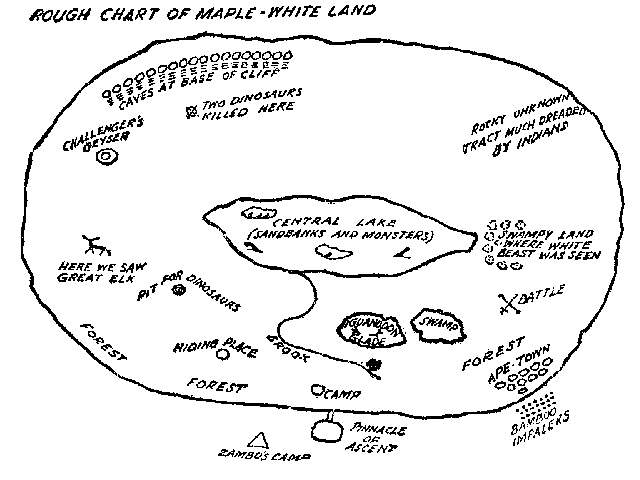 ROUGH CHART OF MAPLE-WHITE LAND
CAVES AT BASE OF CLIFF
TWO DINOSAURS
KILLED HERE
ROCKY UNKNOWN
TRACT MUCH DREADED
BY INDIANS
CHALLENGER'S
GEYSER
CENTRAL LAKE
(SANDBANKS AND MONSTERS)
SWAMPY LAND
WHERE WHITE
BEAST WAS SEEN
HERE WE SAW
GREAT ELK
PIT FOR DINOSAURS
BATTLE
IGUANODON
GLADE
SWAMP
FOREST
HIDING PLACE
BROOK
FOREST
APE-TOWN
FOREST
CAMP
BAMBOO
IMPALERS
PINNACLE
OF
ASCENT
ZAMBO'S CAMP